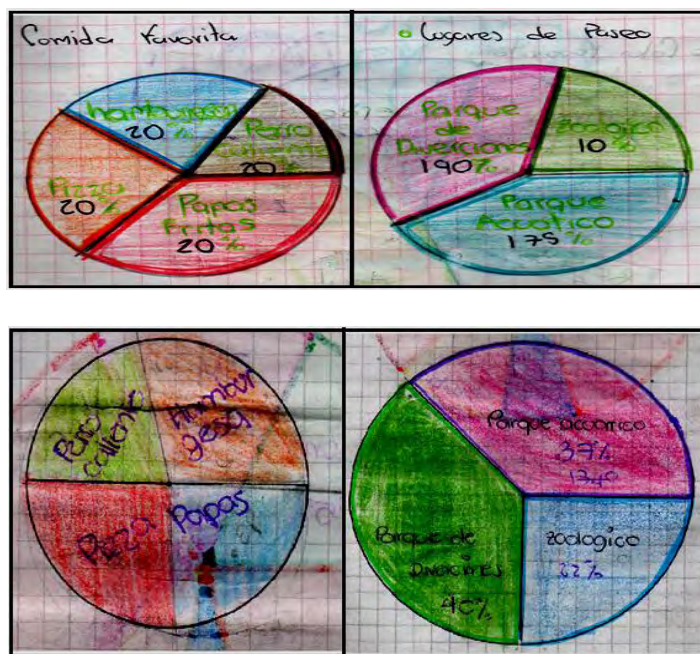 Comida favorita
hamburguesa
20%
Perro
caliente
20%
Pizza
20%
Papas
fritas
20%
Lugares de Paseo
Parque
de
Diverciones
190%
Zoologico
10%
Parque
Acuatico
175%
Perro
caliente
Hambur
gesa
Pizza
Papas
Parque acuatico
37%
134°
Parque de
Zoologico
22%
40%